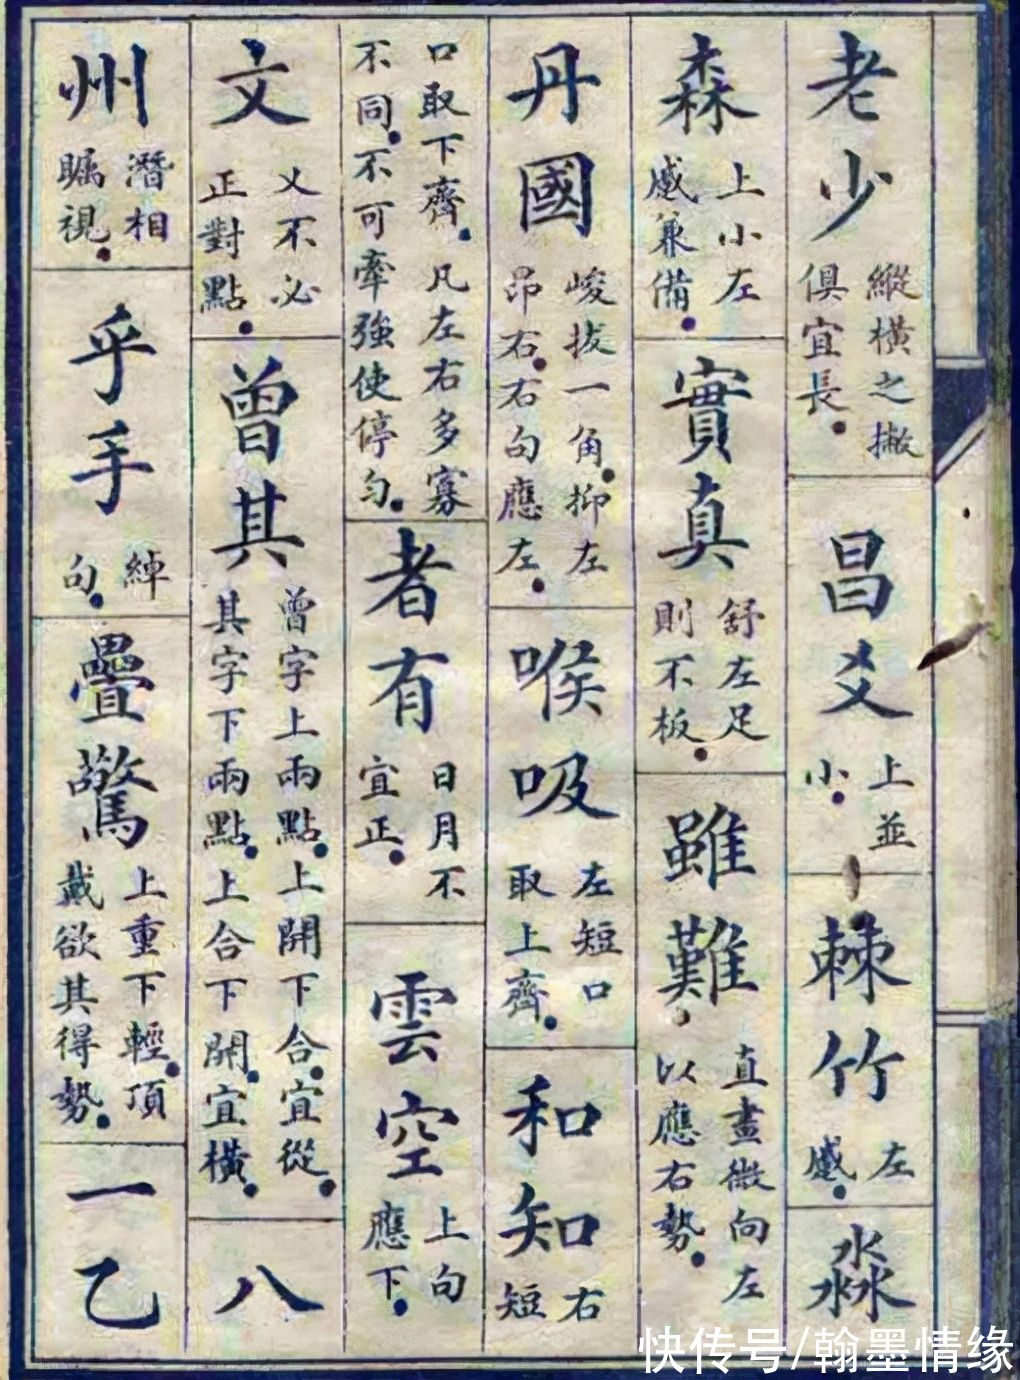 老少
縱橫之撇
俱宜長。
昌爻
上並
小。
棘竹
左
蹙。
淼
森
上小左
蹙兼備。
實真
舒左足
則不板。
雖難
直畫微向左
以應右勢。
丹國
峻拔一角。抑左
昂右。右句應左。
喉吸
左短口
取上齊。
和知
右
短
口取下齊。凡左右多寡
不同。不可牽強使停勻。
者有
日月不
宜正。
雲空
上句
應下。
文
乂不必
正對點。
曾其
曾字上兩點。上開下合。宜從。
其字下兩點。上合下開。宜橫。
八
州
潛相
矚視。
乎手
綽
句。
疊驚
上重下輕。頂
戴欲其得勢。
一乙
快传号/翰墨情缘